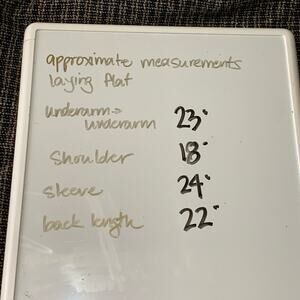 approximate measurements
laying flat
underarm →
underarm 23"
shoulder 18"
sleeve 24"
back length 22"